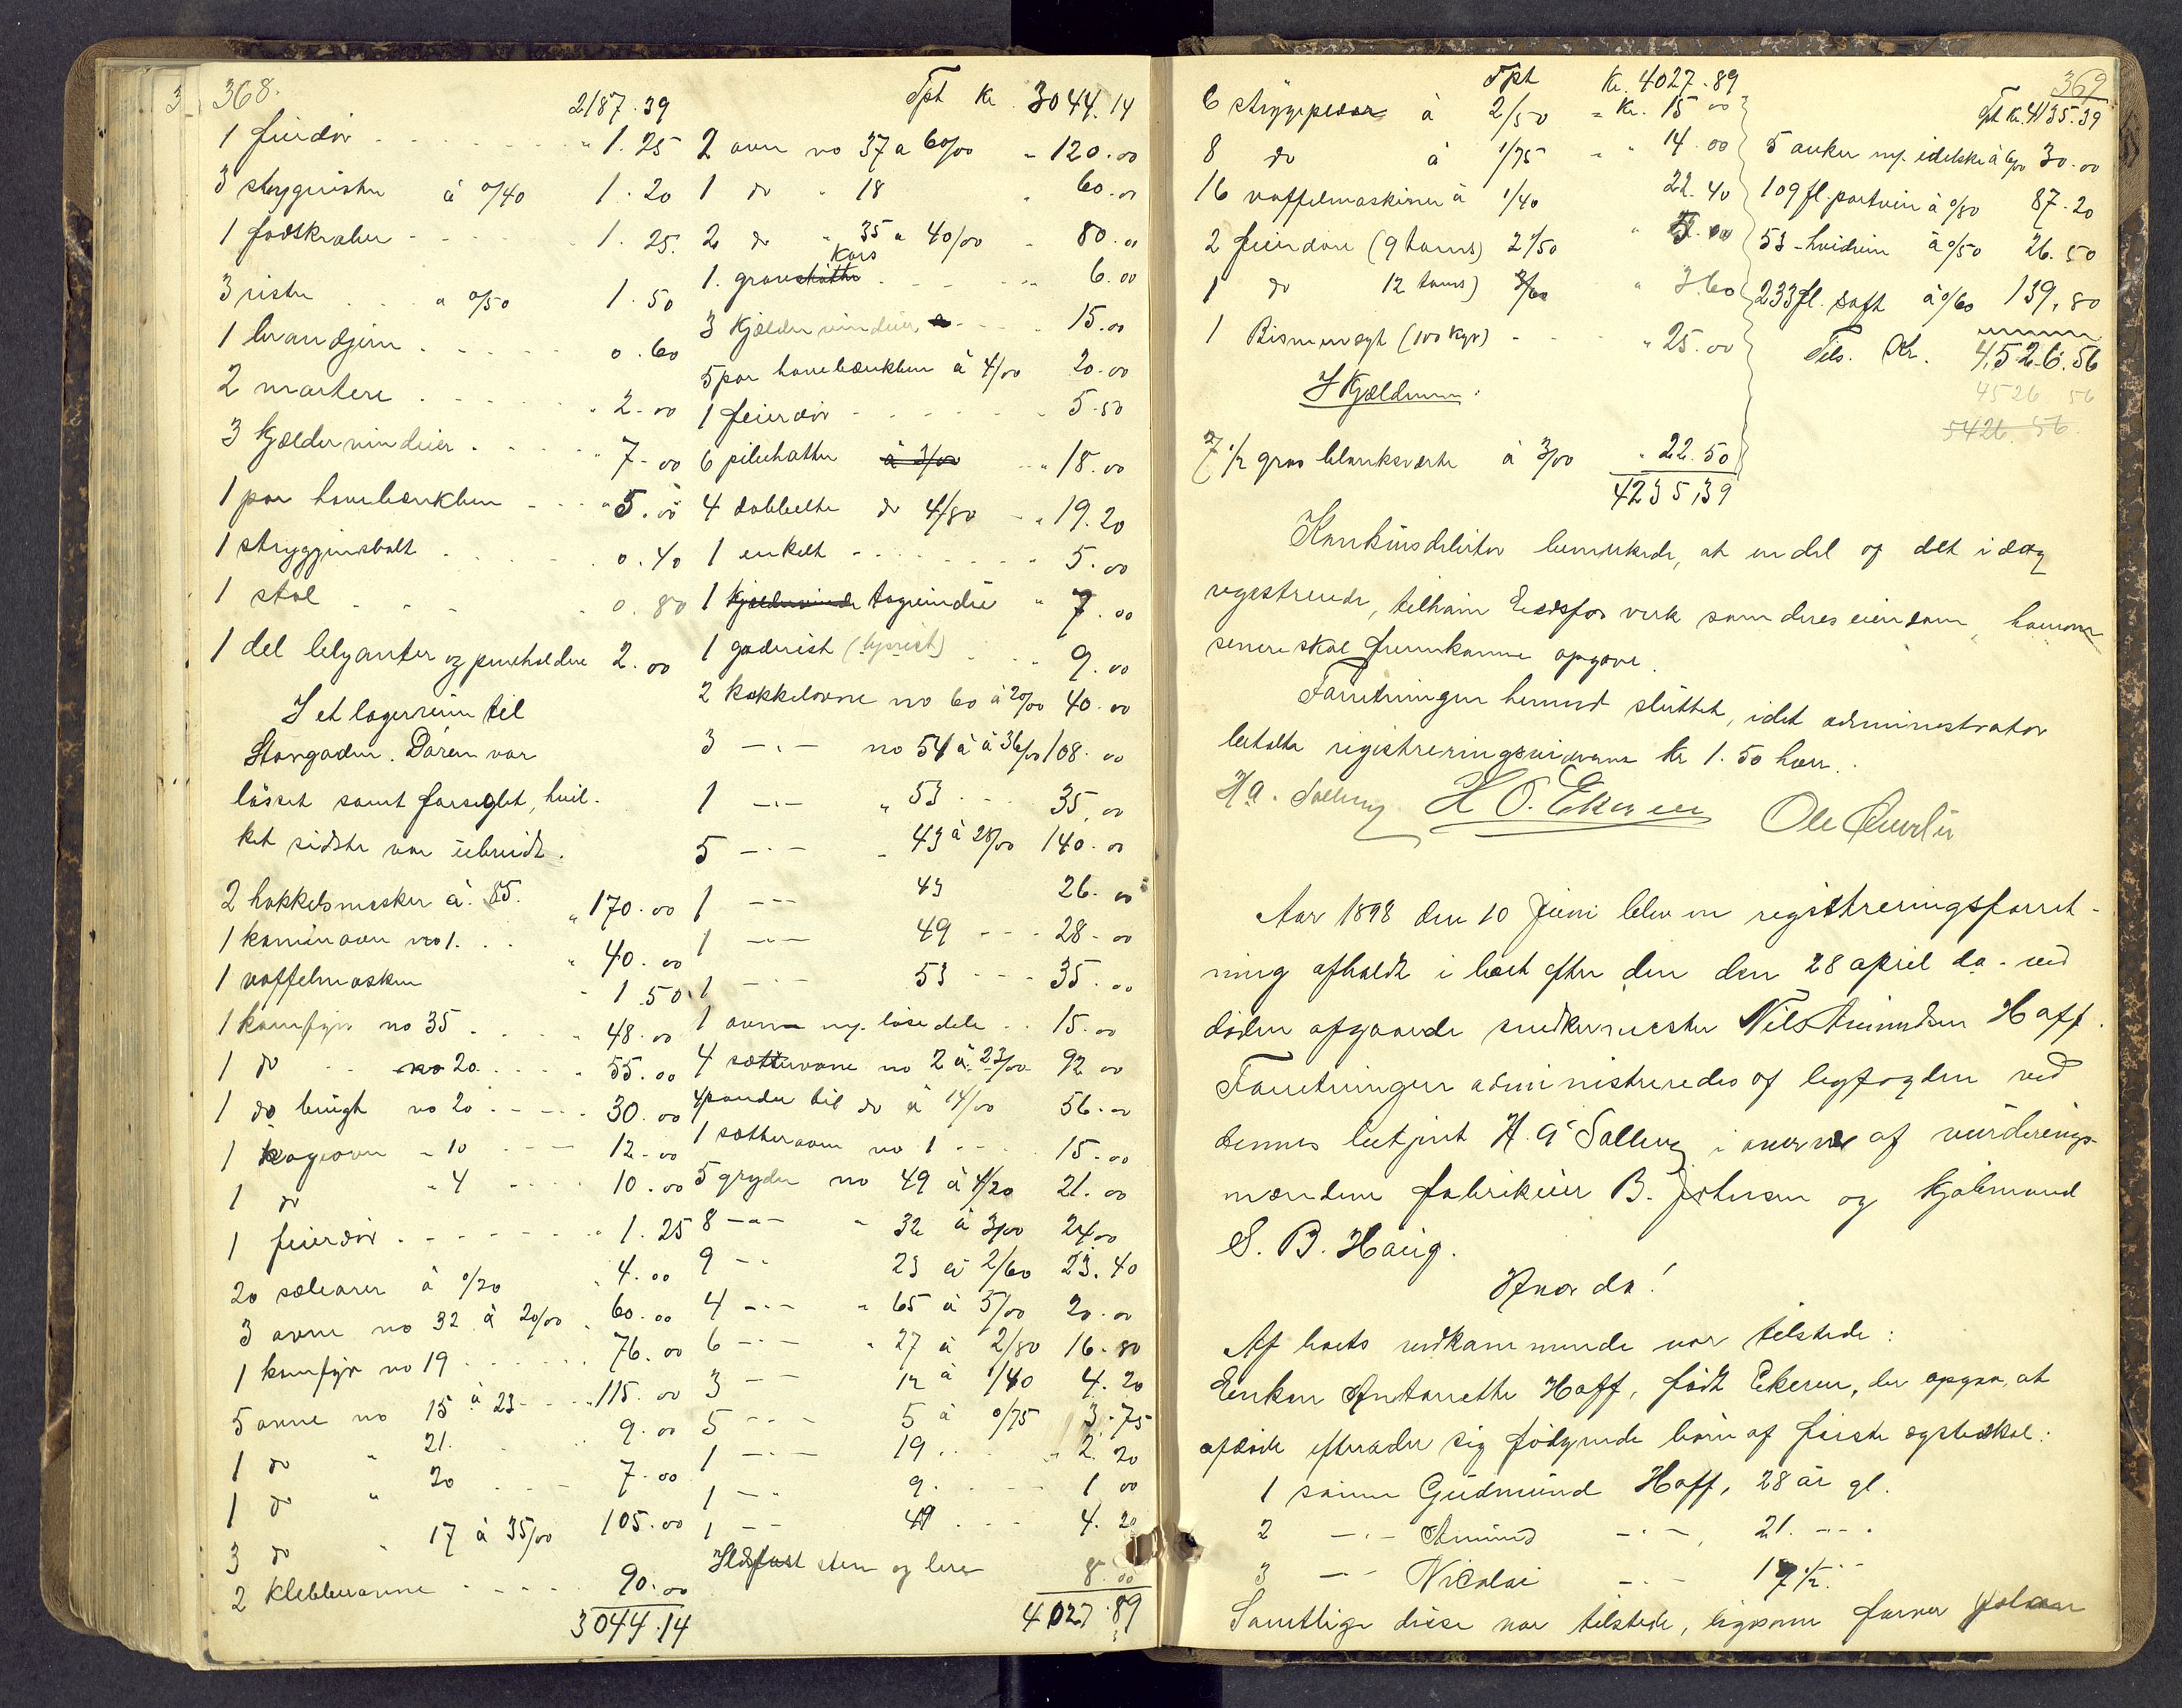 368.
2187.39
1 feierdør . . . . . . " 1.25
3 strygerister à 0/40 1.20
1 fodskraber - - - - 1.25.
3 rister . . " 0/50 1.50
1 brandjern . . . . . 0.60
2 mortere . . . . . . 2.00
3 kjældervinduer . . . . . 7.00
1 par havebænkben - - - " 5.00
1 strygejernsbolt . . . . 0.40
1 stol - - - - 0.80
1 del lysanter og pæreholdere 2.00
I et lagerrum til
Storgaden. Døren var
låset samt forseglet, hvil-
ket sidste var übrudt.
2 hakkelsmasker à. 85. " 170.00
1 kaminovn no 1. . . " 40.00
1 vaffelmaskin - 1.50
1 komfyr no 35 . . . . . 48.00
1 do . . no 20 . . . . 55.00
1 do brugt no 20 - - - - 30.00
1 kogeovn " 10 - - - 12.00
1 do " 4 - - - - 10.00
1 feierdør . - - - - - - 1.25
20 sæbarer à 0/20 4.00
3 ovne no 32 à 20/00 . 60.00
1 komfyr no 19 . . . . . . 76.00
5 ovne no 15 à 23 - - - 115.00
1 do " 21. 9.00
1 do " 20 . . . 7.00
3 do " 17 à 35/00 105.00
2 klebberovne . - - - - 90.00
3044.14
Tpt Kr. 3044.14
2 ovne no 37 a 60/00 " 120.00
1 do " 18 " 60.00
2 do " 35 a 40/00 " 80.00
Kors
1. gravstøtte . - - - - 6.00
3 kjældervinduer - - - . 15.00
5 par havebænkben à 4/00 20.00
1 feierdør - - - - - - 5.50
6 pibehatter à 3/00 " 18.00
4 dobbelte do 4/80 - " 19.20
1 enkelt - - . . . . 5.00
1 kjældervindu tagvindue " 7.00
1 gaderist (lysrist) . . . 9.00
2 kakkelovne no 60 à 20/00 40.00
3 -"- no 54 à à 36/00 108.00
1 -"- " 53 - - 35.00
5 -"- - 43 à 28/00 140.00
1 -"- 43 26.00
1 -"- 49 - - - 28.00
1 -"- 53 - - - 35.00
1 ovn m/. løse dele . . 15.00
4 sætterovne no 2 à 23/00 92.00
4 pander til do à 14/00 56.00
1 sætterovn no 1 - - 15.00
5 gryder no 49 à 4/20 21.00
8 -"- " 32 à 3/00 24.00
9 -"- 23 à 2/60 23.40
4 -"- " 65 à 5/00 20.00
6 -"- " 27 à 2/80 16.80
3 -"- 12 à 1/40 4.20
5 -"- 5 à 0/75 3.75
1 -"- 19 . . " 2.20
1 -"- 9. . . . 1.00
1 -"- 49 . . . 4.20
Ildfast sten og lere 8.00
4027.89
369
Tpt Kr. 4027.89
6 strygepeder à 2/50 = Kr. 15.00
8 do à 1/75 " " 14.00
16 vaffelmaskiner à 1/40 22.40
2 feierdøre (9 toms) 2/50 " 5.00
1 do 12 toms) 3/60 " 3.60
1 Bismervegt (100 kgr) - - " 25.00
I Kjælderen:
7 1/2 gros blanksværte à 3/00 " 22.50
4235,39
Tpt Kr. 4135.39
5 anker m/. edikke à 6/00 30.00
109 fl. portvin à 0/80 87.20
53 - hvidvin à 0/50 26.50
233 fl. saft à 0/60 139,80
Tils. Kr. 4,526.56
4526 56
5426.56.
Konkursdebitor bemerkede, at en del af det idag
registrerede, tilhører Eidsfos verk som deres eiendom, hvorom
senere skal fremkomme opgave.
Forretningen hermed sluttet, idet administrator
betalte registreringsvidnerne kr 1.50 hver.
H a. Solberg H O. Ekeren Ole Qværlii
Aar 1898 den 10 Juni blev en registreringsforret-
ning afholdt i boet efter den den 28 april da. ved
døden afgaaede snedkermester Nils Amundsen Haff.
Forretningen administreredes af byfogden ved
dennes betjent H. a Solberg i overvær af vurderings-
mændene fabrikeier B. Johnsen og kjøbmand
S. B. Haug.
Hvorda!
Af boets vedkommende var tilstede:
Enken Antonette Haff, født Ekeren, der opgav, at
afdøde efterlader sig følgende børn af første ægteskab:
1 sønn Gudmund Haff, 28 år gl.
2 -"- Amund -"- , 21. -"-
3 -"- Nicolai -"- 17 1/2. -"-
Samtlige disse var tilstede, ligesom farver Johan